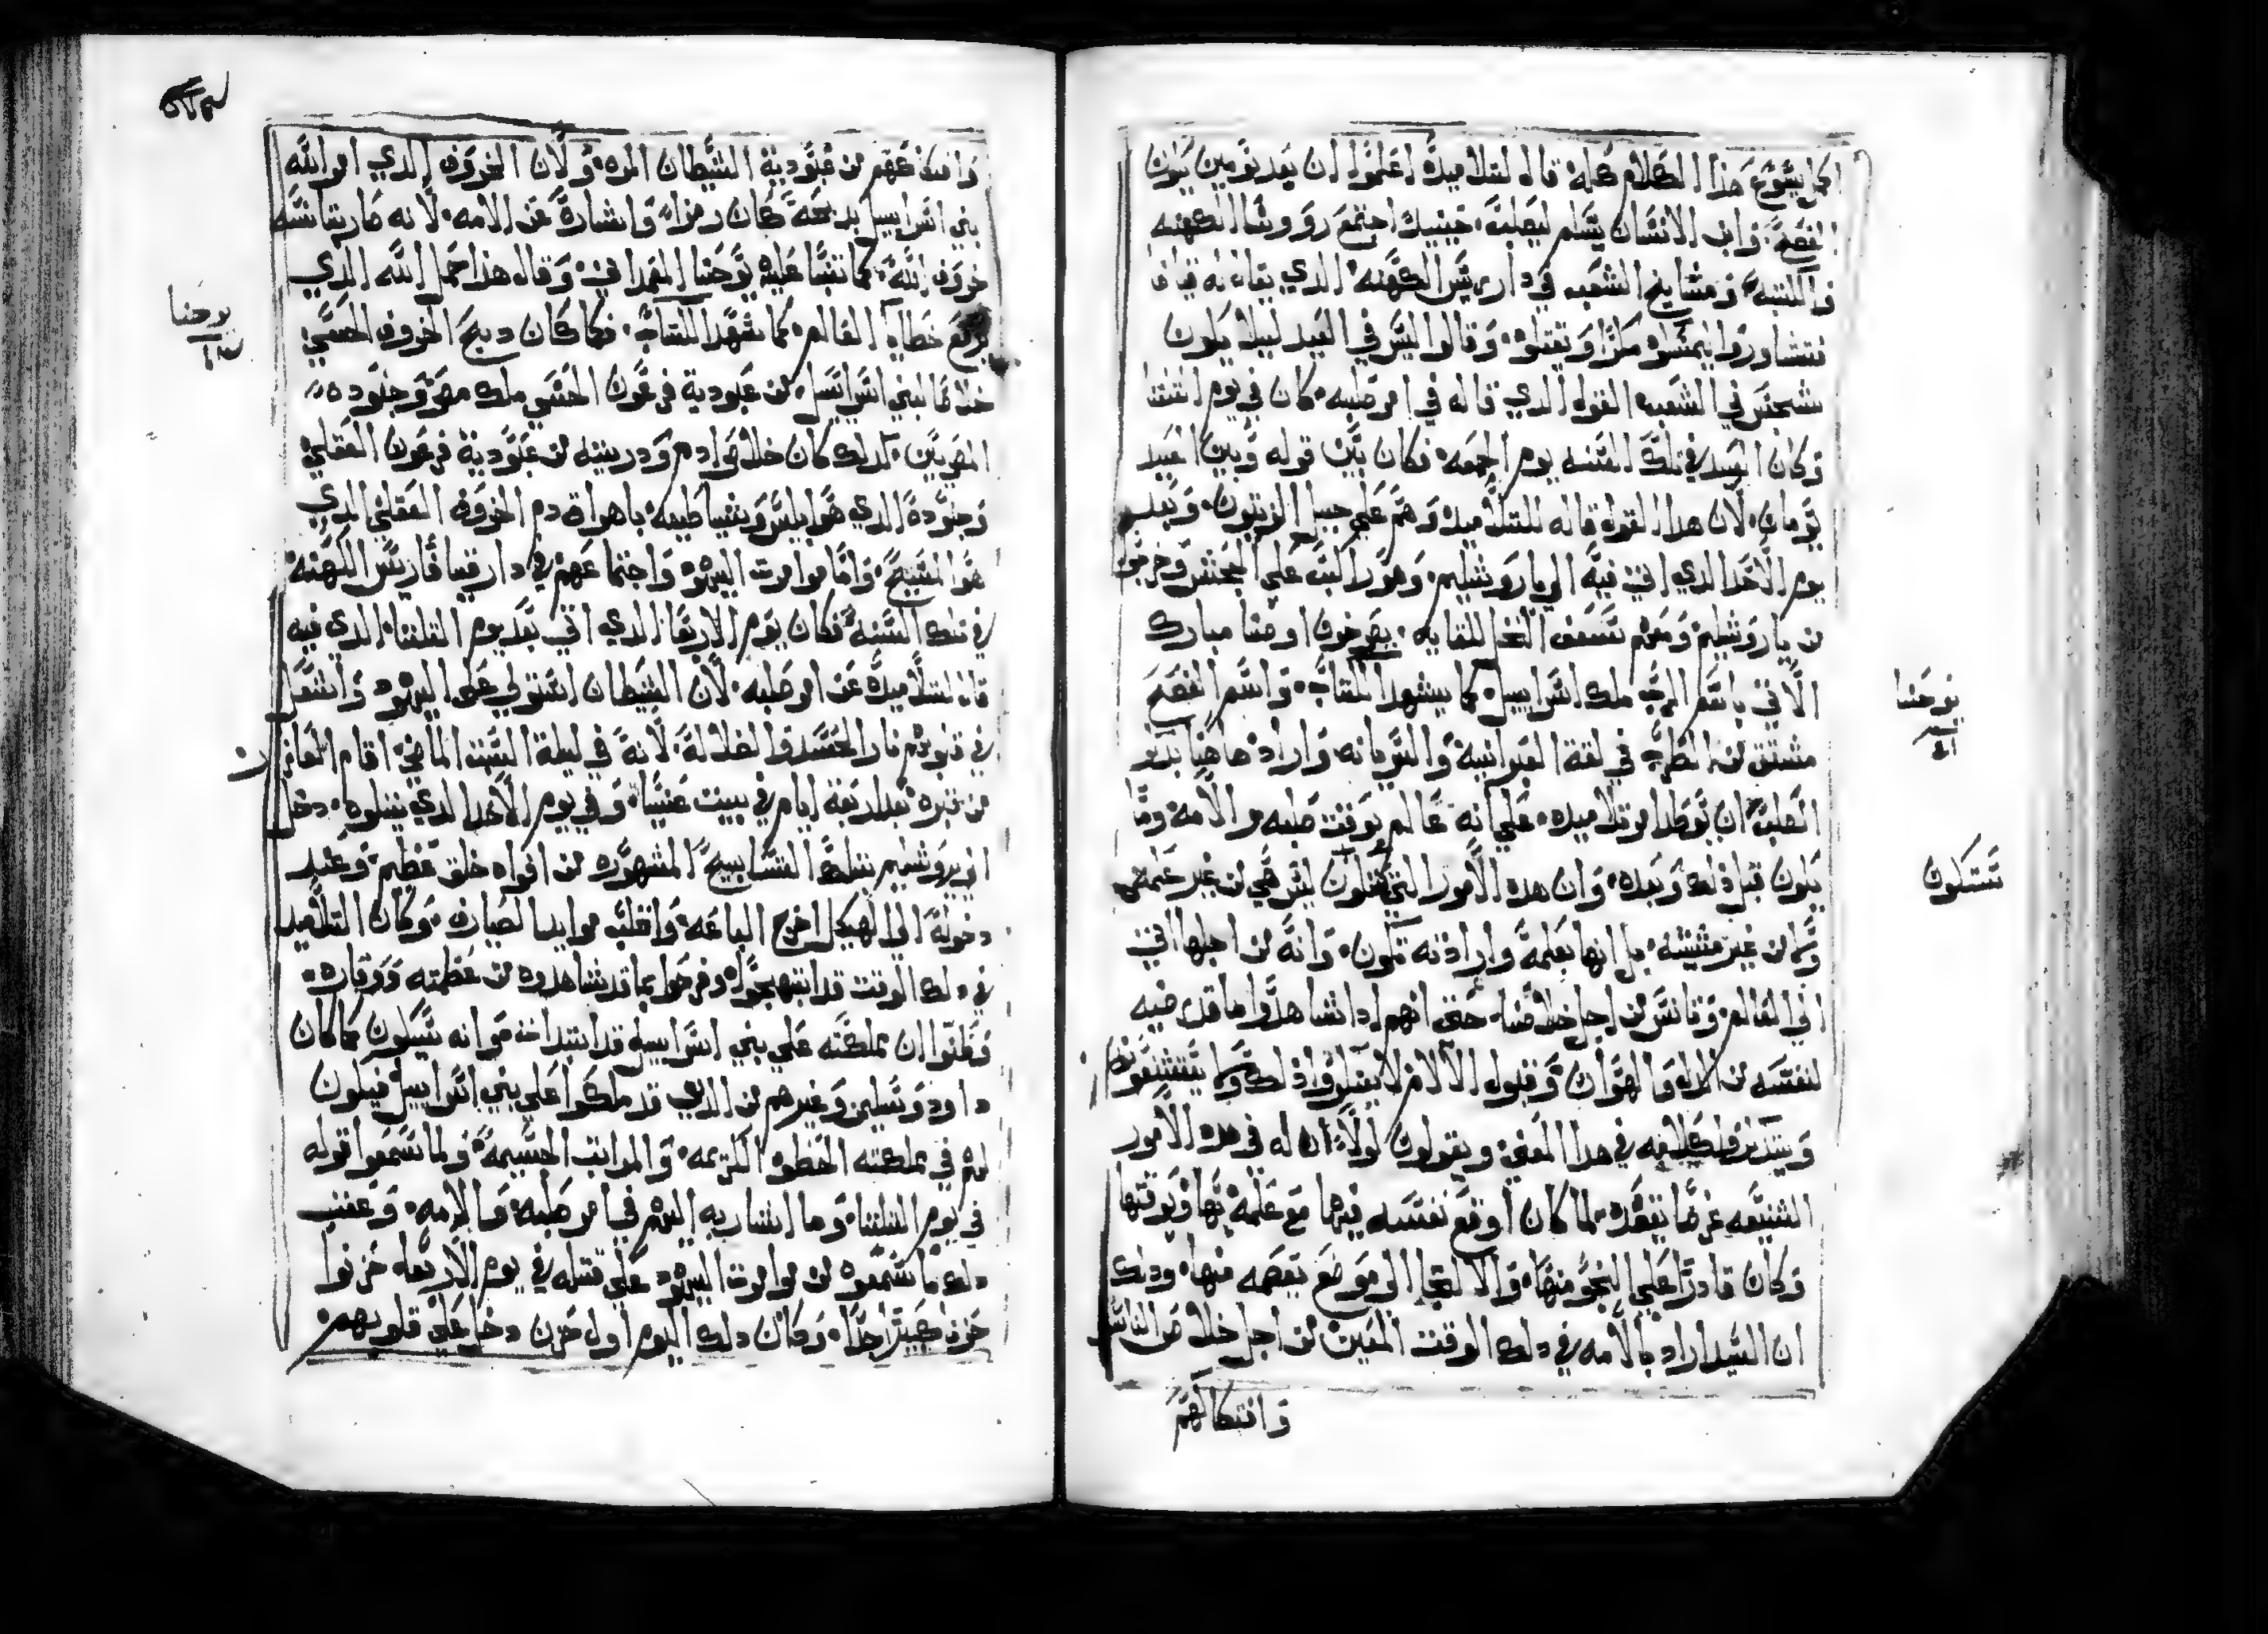 اكمل يسوع هذا الكلام كله قال لتلاميده اعلموا ان بعد يومين يكون
الفصح وابن الانسان يسلم ليصلب حينيد اجتمع رووسا الكهنه
والكتبه ومشايخ الشعب في دار رييس الكهنه الدي يقال له قيافا
فتشاوروا ليمسكوه مكرا ويقتلوه وقالوا ليس في العيد ليلا يكون
سجس في الشعب القول الدي قاله في امر صلبه كان في يوم التلتا
وكان العيد في تلك السنه يوم الجمعه فكان بين قوله وبين العيد
يومان لان هدا القول قاله للتلاميد وهم علي جبل الزيتون وبعد
يوم الاحد الدي اتي فيه الي ياروشليم وهو راكب علي الجحش وخرجوا
من ياروشليم ومعهم سعف النخل للقايه يصرخون اوصنا مبارك
الاتي باسم الرب ملك اسراييل كما يشهد الكتاب واسم الفصح
مشتق من الطرب في لغة العبرانية والسريانه واراد هاهنا بدكر
الصلب ان يوطد امر تلاميده علي انه عالم بوقت صلبه والامه وما
يكون قبل دلك وبعده وان هده الامور التي تكون ليس هي من غير علمه
ولا من غير مشيته بل انها بعلمه وارادته تكون وانه من اجلها اتي
الي العالم وتانس من اجل خلاصنا حتي انهم ادا شاهدوا ما قد رضيه
لنفسه من الدل والهوان وقبول الالام لا يقلقوا ادلك ولا يتشنعوه
ويتدكروا كلامه في هدا المعني ويقولون لولا ان له في هده الامور
الشنيعه غرضا يقصده لما كان اوقع نفسه فيها مع علمه بها وبوقتها
وكان قادرا علي النجو منها والالتجا الي موضع يعصمه منها ودلك
ان السيد اراد بالامه في دلك الوقت المعين من اجل خلاص الناس
وانفكاكهم
يوحنا
١٢
ستكون
وانفكاكهم من عبودية الشيطان المره ولان الخروف الدي امر الله
بني اسراييل بدبحه كان رمزا واشارة عن الامه لانه صار بتانسه
خروف الله كما تنبا عليه يوحنا المعمداني وقال هدا حمل الله الدي
يرفع خطايا العالم كما شهد الكتاب فكما كان دبح الخروف الحسي
خلاصا لبني اسراييل من عبودية فرعون الحسي ملك مصر وجنوده
المصريين كدلك كان خلاص ادم ودريته من عبودية فرعون العقلي
وجنوده الدي هو ابليس وشياطينه باهراق دم الخروف العقلي الدي
هو المسيح واما موامرت اليهود واجتماعهم في دار قيافا رييس الكهنه
في تلك السنه فكان يوم الاربعا الدي اتي بعد يوم التلتا الدي فيه
قال لتلاميده عن امر صلبه لان الشيطان استولي علي اليهود واشعل
في قلوبهم نار الحسد والضلاله لانه في ليلة السبت الماضي اقام العازر
من قبره بعد اربعة ايام في بيت عنيا وفي يوم الاحد الدي يتلوه دخل
الي يروشليم بتلك التسابيح المشهوره من افواه خلق عظيم وعند
دخوله الي الهيكل اخرج الباعه واقلب موايد الصيارف وكان التلاميد
في دلك الوقت قد ابتهجوا وفرحوا بما قد شاهدوه من عظمته ووقاره
وظنوا ان مملكته علي بني اسراييل قد ابتدات وانه سيكون كما كان
داود وسليمن وغيرهم من الدين قد ملكوا علي بني اسراييل فيكون
لهم في مملكته الحظوه الكريمه والمراتب الجسيمه ولما سمعوا قوله
في يوم التلتا وما اشار به اليهم في امر صلبه والامه وعقيب
دلك ما سمعوه من موامرت اليهود علي قتله في يوم الاربعا حزنوا
حزن كبيرا جدا وكان دلك اليوم اول حزن دخل علي قلوبهم
يوحنا